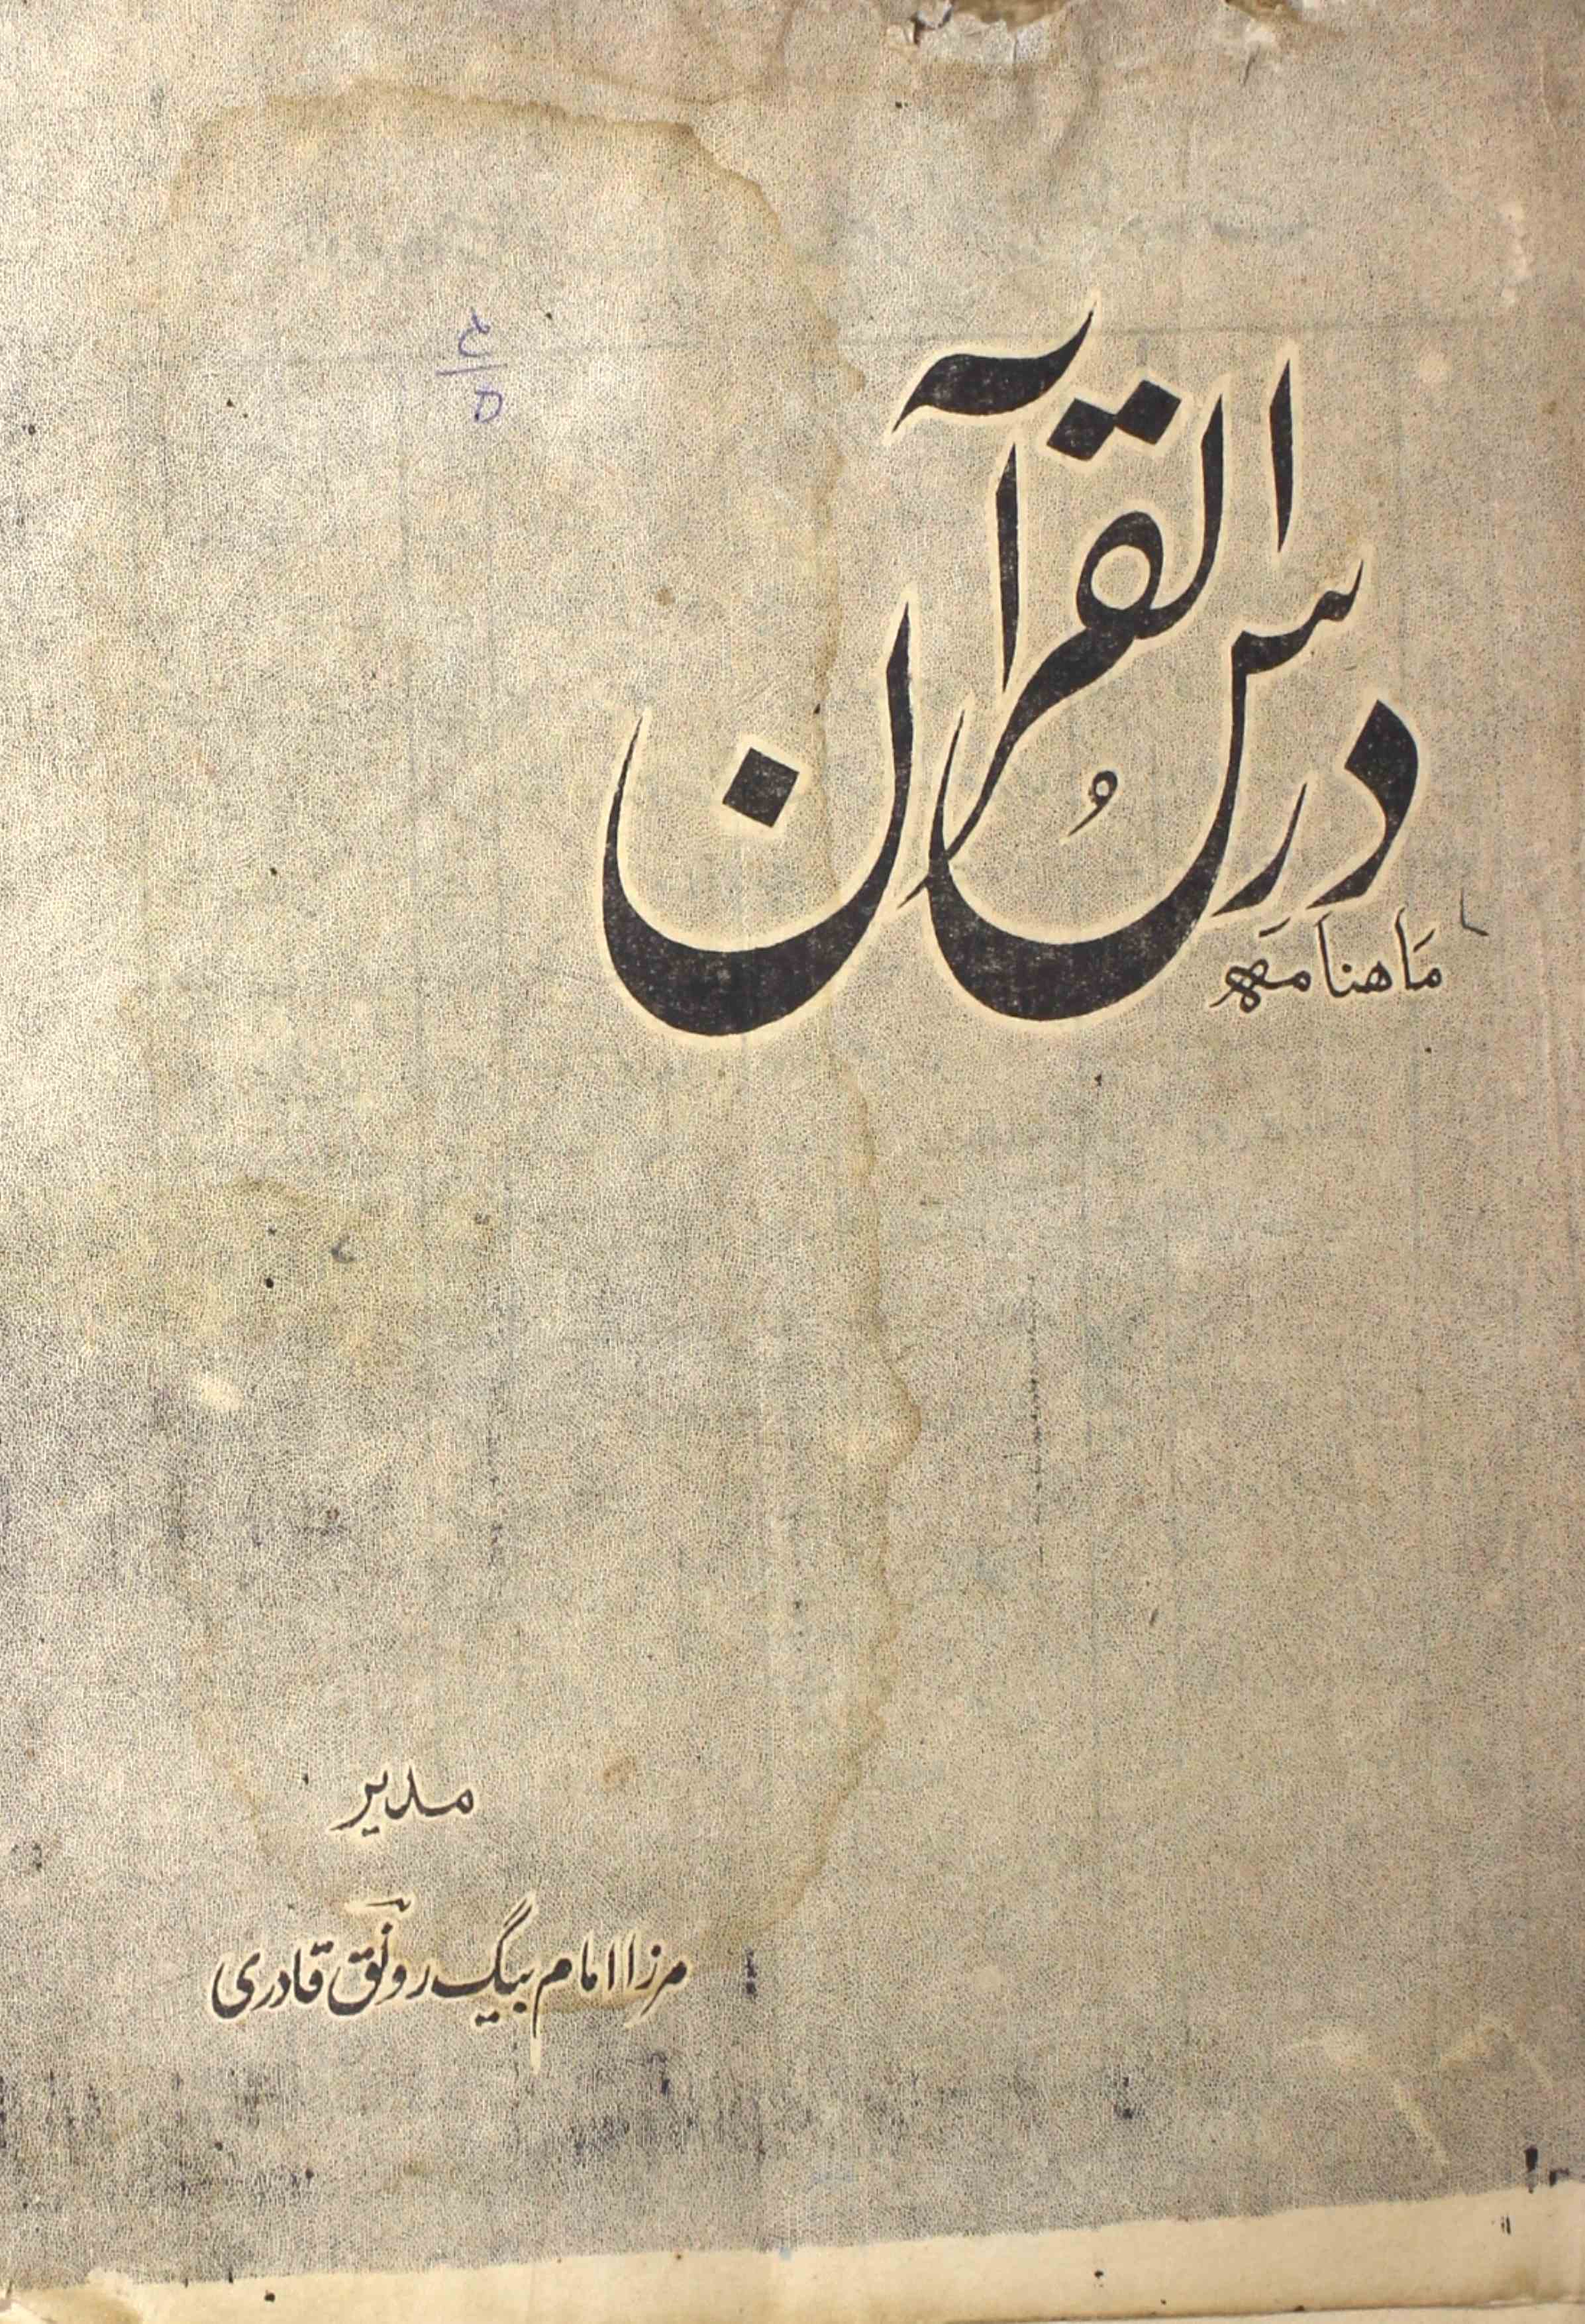 درسُ القرآن
ماهنامہ
مدیر
مرزا امام بیگ رونق قادری